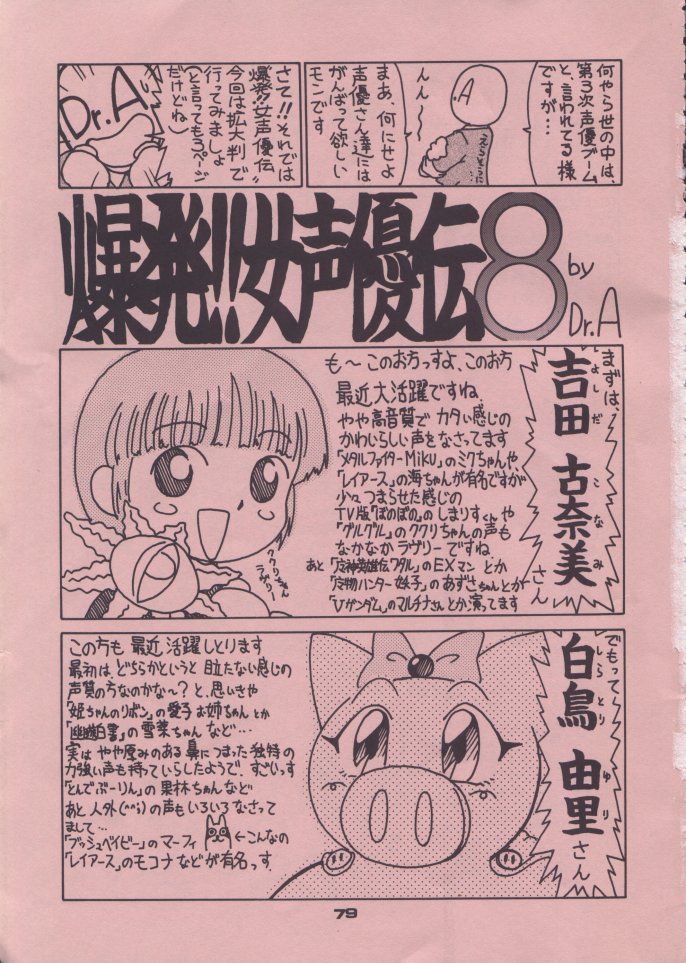 何やら世の中は、
第3次声優ブーム
と、言われてる様
ですが…
.A
えらそうに
んん
まあ、何にせよ
声優さん達には
がんばって欲しい
モンです
さて!!それでは
爆発!!女声優伝
今回は拡大判で
行ってみましょ
(と言っても3ページ
だけどね)
Dr.A
爆発!!女声優伝8
by
Dr.A
まずは、
吉田古奈美さん
よしだ こなみ
も〜このお方っすよ、このお方
最近大活躍ですね。
やや高音質でカタい感じの
かわいらしい声をなさってます
「メタルファイターMiku」のミクちゃんや、
「レイアース」の海ちゃんが有名ですが
少々つまらせた感じの
TV版「ぼのぼの」のしまりすくんや
「グルグル」のククリちゃんの声も
なかなかラヴリーですね
あと「魔神英雄伝ワタル」のEXマンとか
「魔物ハンター妖子」のあずさちゃんとか
「Vガンダム」のマルチナさんとか演ってます
ククリちゃん
ラヴリー
でもって、
白鳥由里さん
しらとり ゆり
この方も最近活躍しとります
最初は、どちらかというと目立たない感じの
声質の方なのかな〜?と、思いきや
「姫ちゃんのリボン」の愛子お姉ちゃんとか
「幽遊白書」の雪菜ちゃんなど…
実はやや厚みのある鼻につまった独特の
力強い声も持っていらしたようで、すごいっす
「とんでぶーりん」の果林ちゃんなど
あと人外(^^;)の声もいろいろなさって
まして…
「ブッシュベイビー」のマーフィ
←こんなの
「レイアース」のモコナなどが有名っす。
79